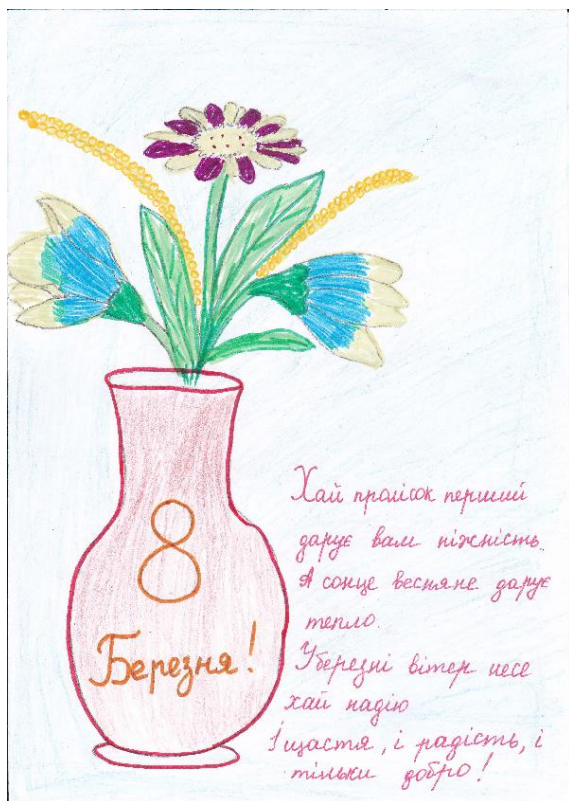 8
Березня!
Хай пролісок перший
дарує вам ніжність.
А сонце весняне дарує
тепло.
У березні вітер несе
хай надію
І щастя, і радість, і
тільки добро!